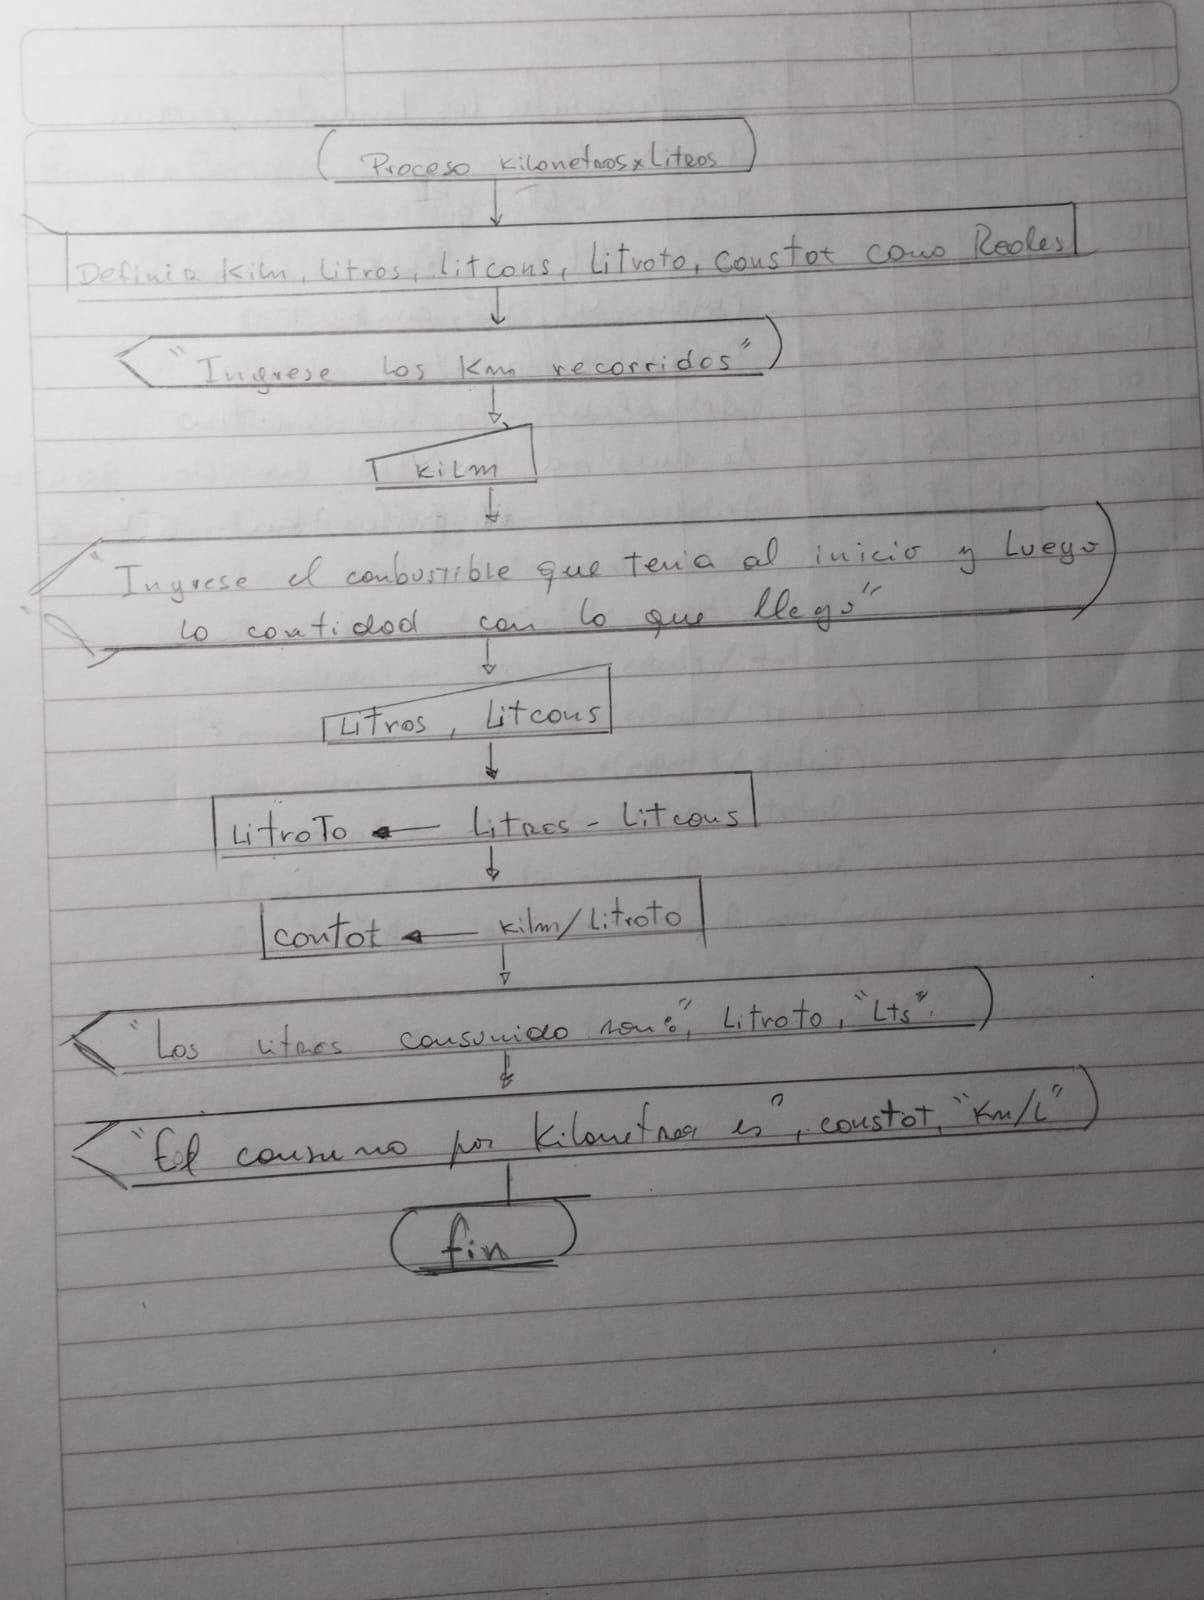 Proceso kilometros x Litros
Definir kilm, Litros, Litcons, Litroto, constot como Reales
"Ingrese los Km recorridos"
kilm
"Ingrese el combustible que tenia al inicio y Luego
la cantidad con lo que llego"
Litros, Litcons
LitroTo ← Litros - Litcons
contot ← kilm/Litroto
"Los litros consumido son:", Litroto, "Lts".
"El consumo por kilometros es", constot, "Km/L"
fin